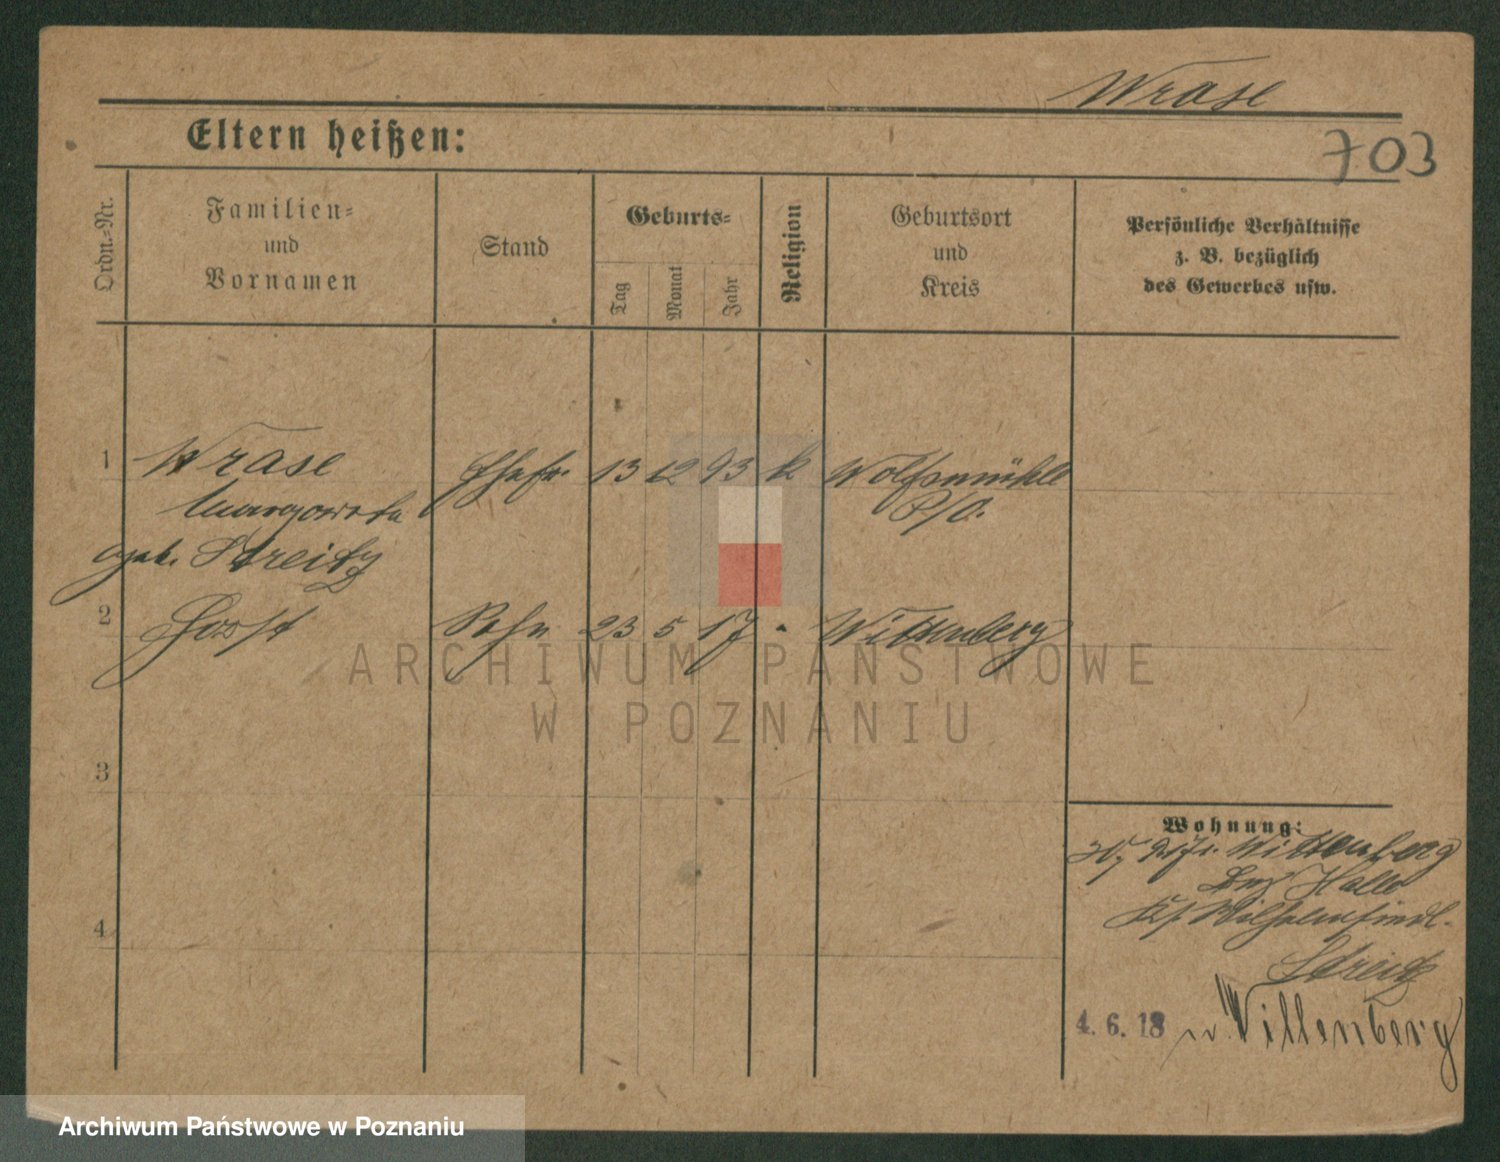 Wrase
703
Eltern heißen:
Ordn.-Nr.
Familien-
und
Vornamen
Stand
Geburts-
Tag
Monat
Jahr
Religion
Geburtsort
und
Kreis
Persönliche Verhältnisse
z. B. bezüglich
des Gewerbes usw.
1 Wrase Ehefr. 13 12 93 k Wolfsmühle
Margareta P/O.
geb. Streitz
2 Horst Sohn 23 5 17 " Wittenberg
3
4
Wohnung:
Wittenberg
Bez Halle
Streitz
4. 6. 18 n. Willenberg
ARCHIWUM PAŃSTWOWE
W POZNANIU
Archiwum Państwowe w Poznaniu